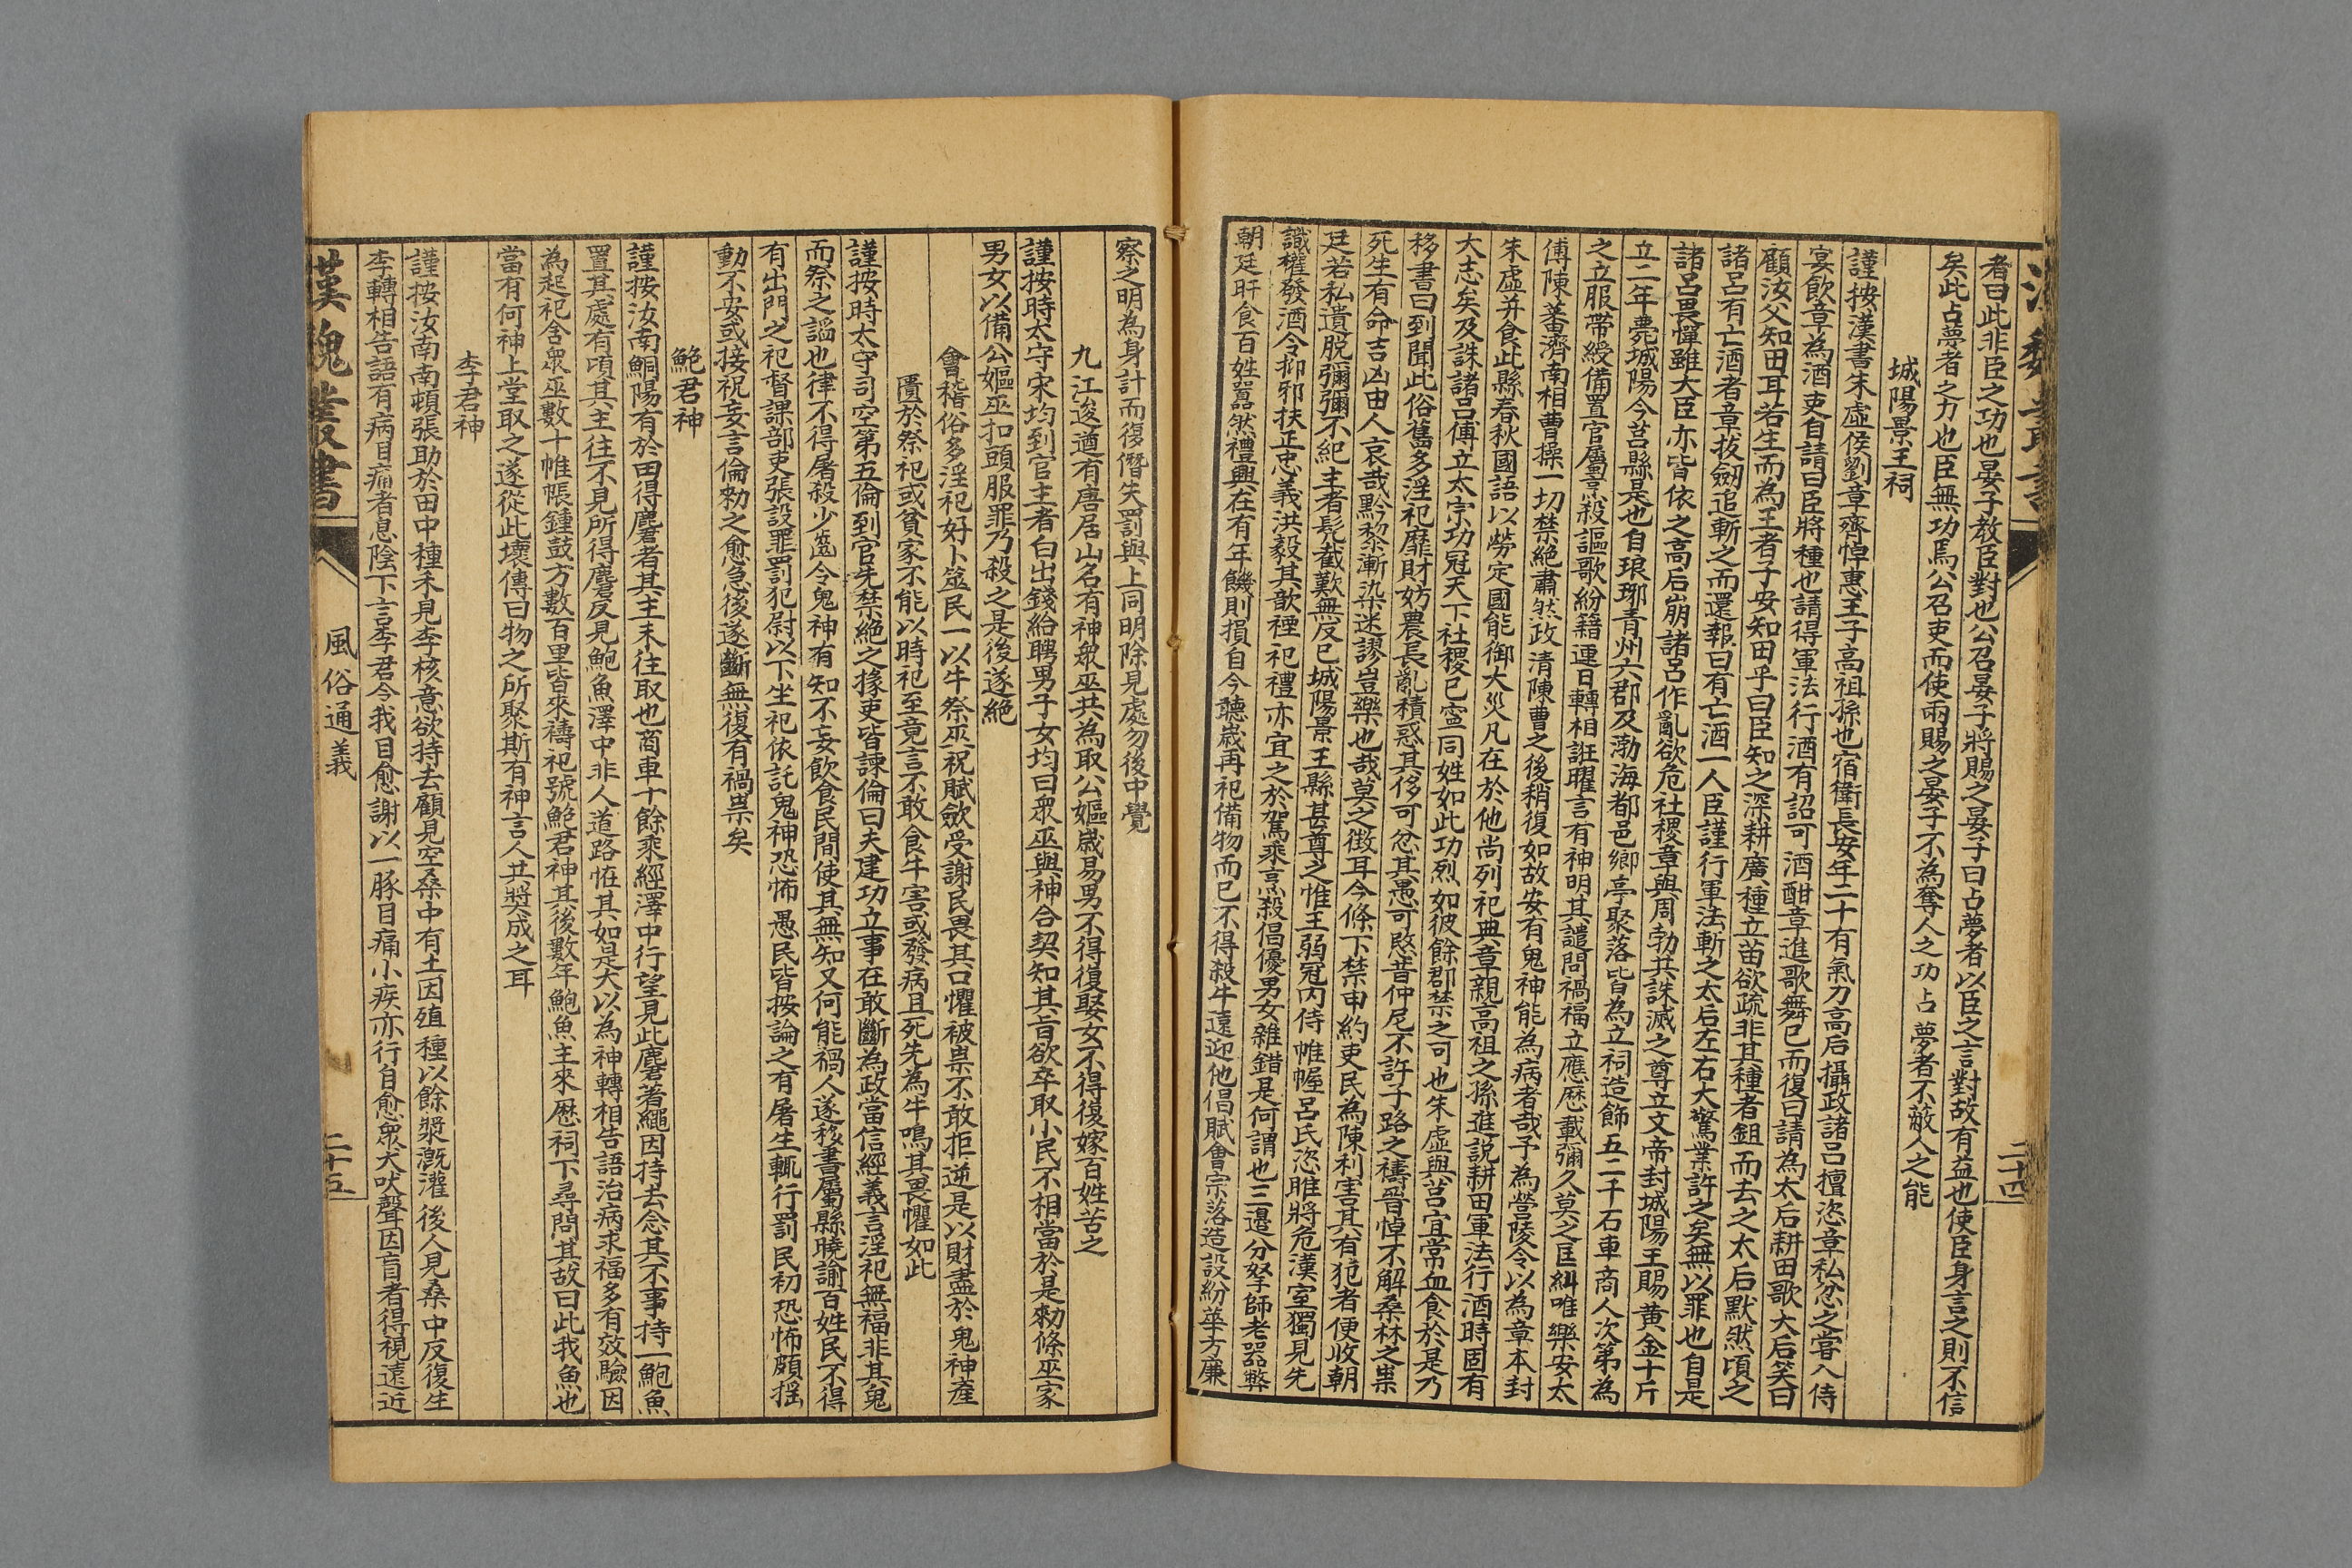 者曰此非臣之功也晏子教臣對也公召晏子將賜之晏子曰占夢者以臣之言對故有益也使臣身言之則不信
矣此占夢者之力也臣無功焉公召吏而使兩賜之晏子不為奪人之功占夢者不蔽人之能
城陽景王祠
謹按漢書朱虛侯劉章齊悼惠王子高祖孫也宿衛長安年二十有氣力高后攝政諸呂擅恣章私忿之嘗入侍
宴飲章為酒吏自請曰臣將種也請得軍法行酒有詔可酒酣章進歌舞已而復曰請為太后耕田歌大后笑曰
顧汝父知田耳若生而為王者子安知田乎曰臣知之深耕廣種立苗欲疏非其種者鉏而去之太后默然頃之
諸呂有亡酒者章拔劒追斬之而還報曰有亡酒一人臣謹行軍法斬之太后左右大驚業許之矣無以罪也自是
諸呂畏憚雖大臣亦皆依之高后崩諸呂作亂欲危社稷章與周勃共誅滅之尊立文帝封城陽王賜黃金十斤
立二年薨城陽今莒縣是也自琅琊青州六郡及渤海都邑鄉亭聚落皆為立祠造飾五二千石車商人次第為
之立服帶綬備置官屬烹殺謳歌紛籍連日轉相誑曜言有神明其譴問禍福立應歷載彌久莫之匡糾唯樂安太
傅陳蕃濟南相曹操一切禁絕肅然政清陳曹之後稍復如故安有鬼神能為病者哉予為營陵令以為章本封
朱虛并食此縣春秋國語以勞定國能御大災凡在於他尚列祀典章親高祖之孫進說耕田軍法行酒時固有
大志矣及誅諸呂傅立太宗功冠天下社稷已寍同姓如此功烈如彼餘郡禁之可也朱虛與莒宜常血食於是乃
移書曰到聞此俗舊多淫祀靡財妨農長亂積惑其侈可忿其愚可愍昔仲尼不許子路之禱晉悼不解桑林之祟
死生有命吉凶由人哀哉黔黎漸染迷謬豈樂也哉莫之徵耳今條下禁申約吏民為陳利害其有犯者便收朝
廷若私遺脫彌彌不紀主者髡截歎無反已城陽景王縣甚尊之惟王弱冠內侍帷幄呂氏恣睢將危漢室獨見先
識權發酒令抑邪扶正忠義洪毅其歆禋祀禮亦宜之於駕乘烹殺倡優男女雜錯是何謂也三邊分拏師老器弊
朝廷旰食百姓嚚然禮興在有年饑則損自今聽歲再祀備物而已不得殺牛遠迎他倡賦會宗落造設紛華方廉
二十四
察之明為身計而復僭失罰與上同明除見處勿後中覺
九江逡遒有唐居山名有神眾巫共為取公嫗歲易男不得復娶女不得復嫁百姓苦之
謹按時太守宋均到官主者白出錢給聘男子女均曰眾巫與神合契知其旨欲卒取小民不相當於是勑條巫家
男女以備公嫗巫扣頭服罪乃殺之是後遂絕
會稽俗多淫祀好卜筮民一以牛祭巫祝賦斂受謝民畏其口懼被祟不敢拒逆是以財盡於鬼神產
匱於祭祀或貧家不能以時祀至竟言不敢食牛害或發病且死先為牛鳴其畏懼如此
謹按時太守司空第五倫到官先禁絕之掾吏皆諫倫曰夫建功立事在敢斷為政當信經義言淫祀無福非其鬼
而祭之謟也律不得屠殺少齔令鬼神有知不妄飲食民間使其無知又何能禍人遂移書屬縣曉諭百姓民不得
有出門之祀督課部吏張設罪罰犯尉以下坐祀依託鬼神恐怖愚民皆按論之有屠生輒行罰民初恐怖頗搖
動不安或接祝妄言倫勑之愈急後遂斷無復有禍祟矣
鮑君神
謹按汝南鮦陽有於田得麏者其主未往取也商車十餘乘經澤中行望見此麏著繩因持去念其不事持一鮑魚
置其處有頃其主往不見所得麏反見鮑魚澤中非人道路恠其如是大以為神轉相告語治病求福多有效驗因
為起祀舍眾巫數十帷帳鍾鼓方數百里皆來禱祀號鮑君神其後數年鮑魚主來歷祠下尋問其故曰此我魚也
當有何神上堂取之遂從此壞傳曰物之所聚斯有神言人共獎成之耳
李君神
謹按汝南南頓張助於田中種禾見李核意欲持去顧見空桑中有土因殖種以餘漿溉灌後人見桑中反復生
李轉相告語有病目痛者息陰下言李君令我目愈謝以一豚目痛小疾亦行自愈眾犬吠聲因盲者得視遠近
漢魏叢書
風俗通義
二十五